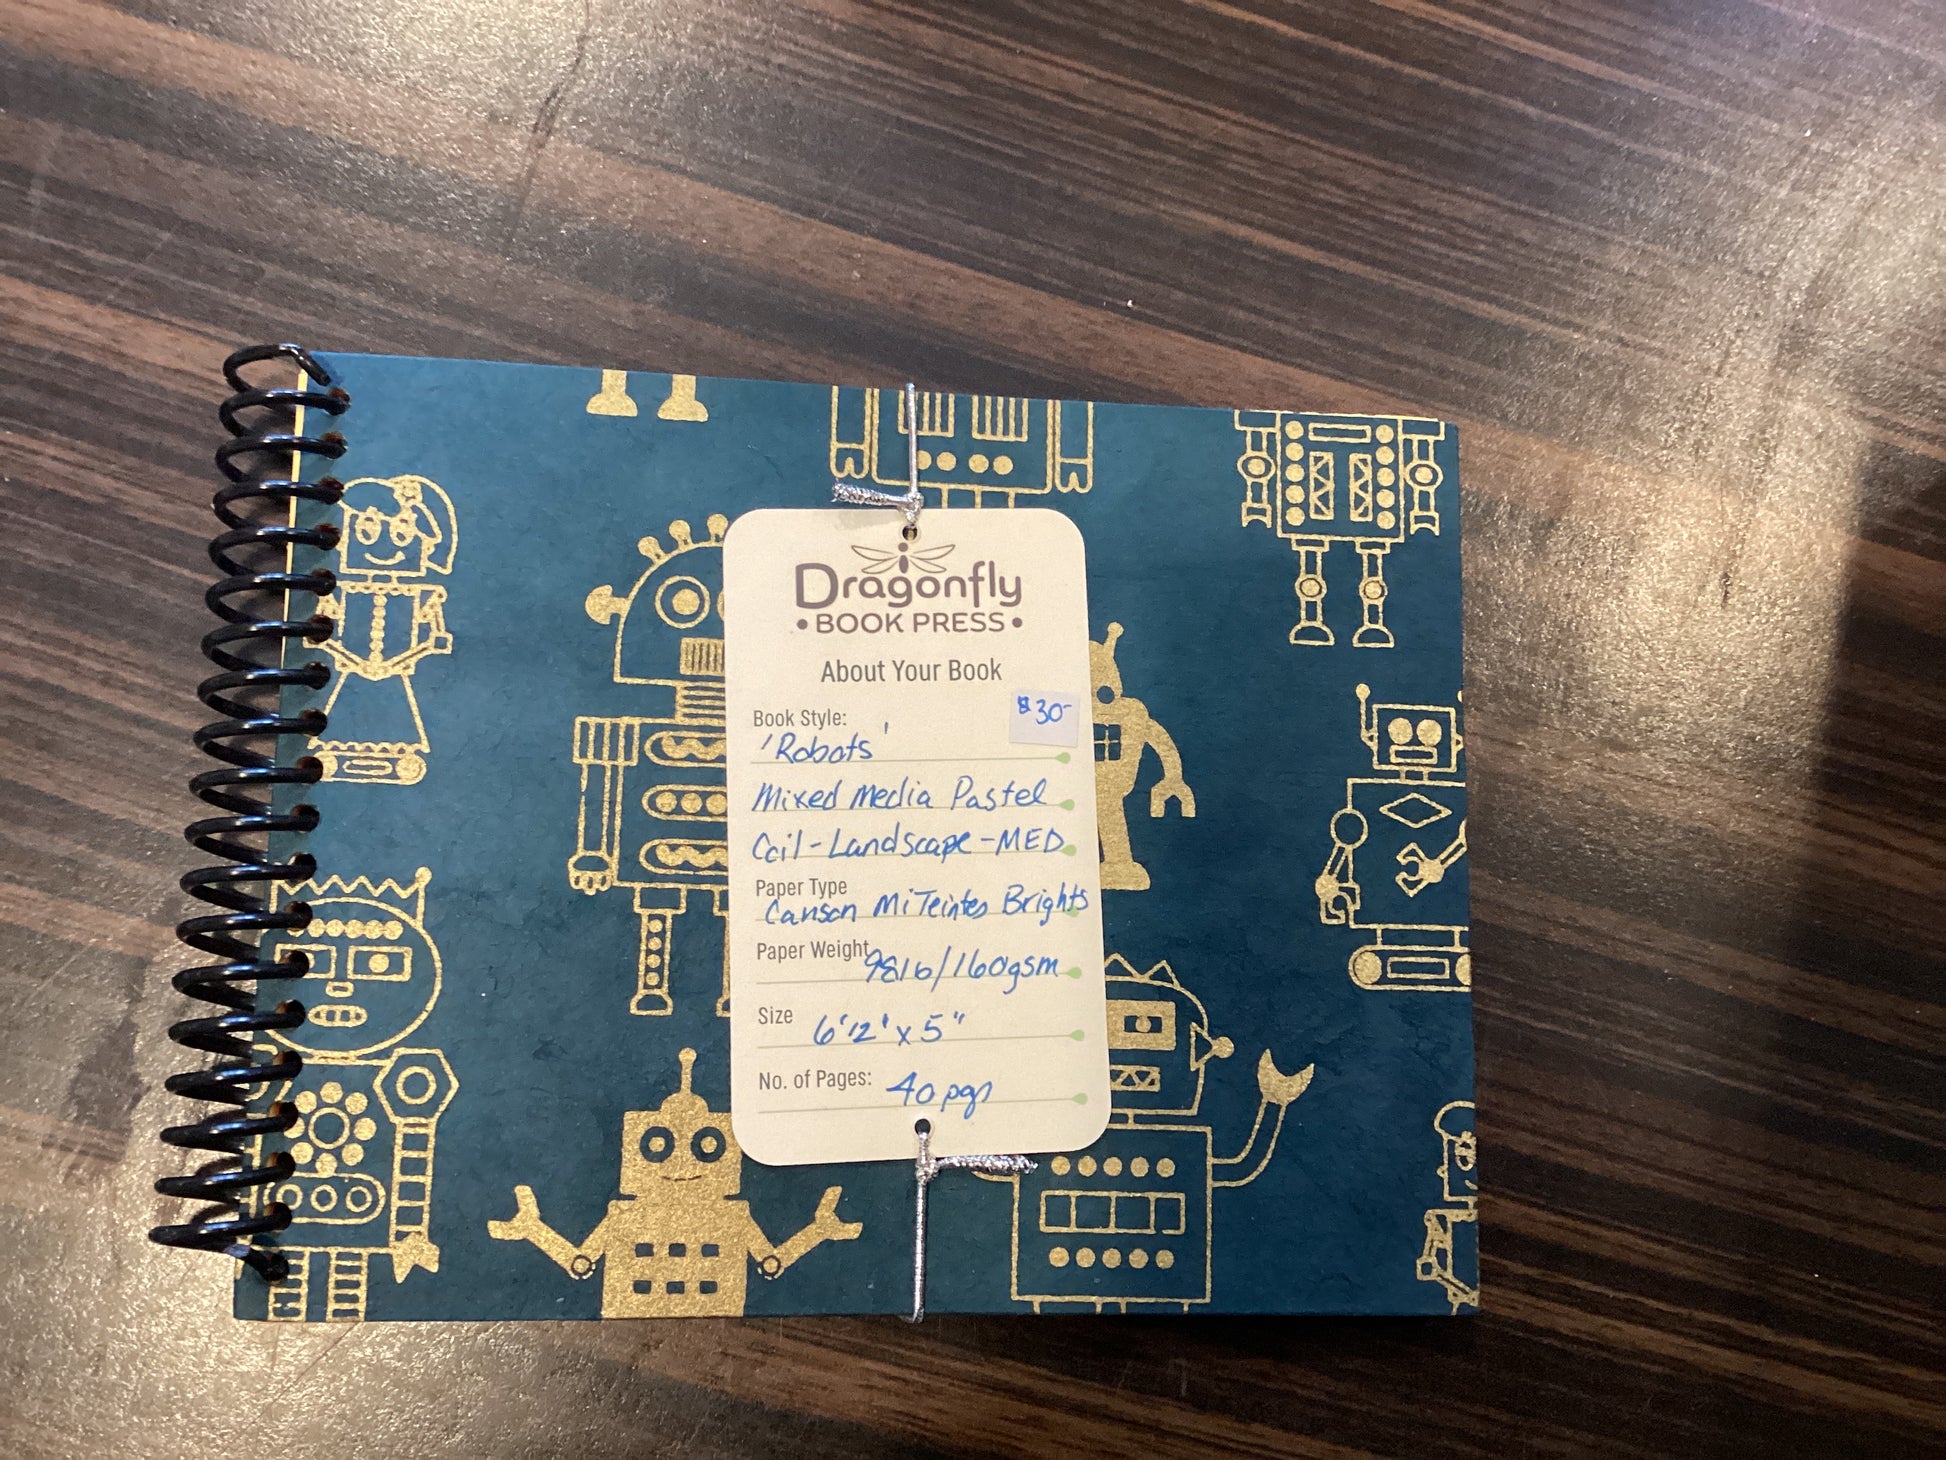 Dragonfly
• BOOK PRESS •
About Your Book
$30-
Book Style:
'Robots'
Mixed Media Pastel
Coil-Landscape-MED
Paper Type
Canson MiTeintes Brights
Paper Weight
98lb/160gsm
Size
6'12' x 5"
No. of Pages:
40 pgs